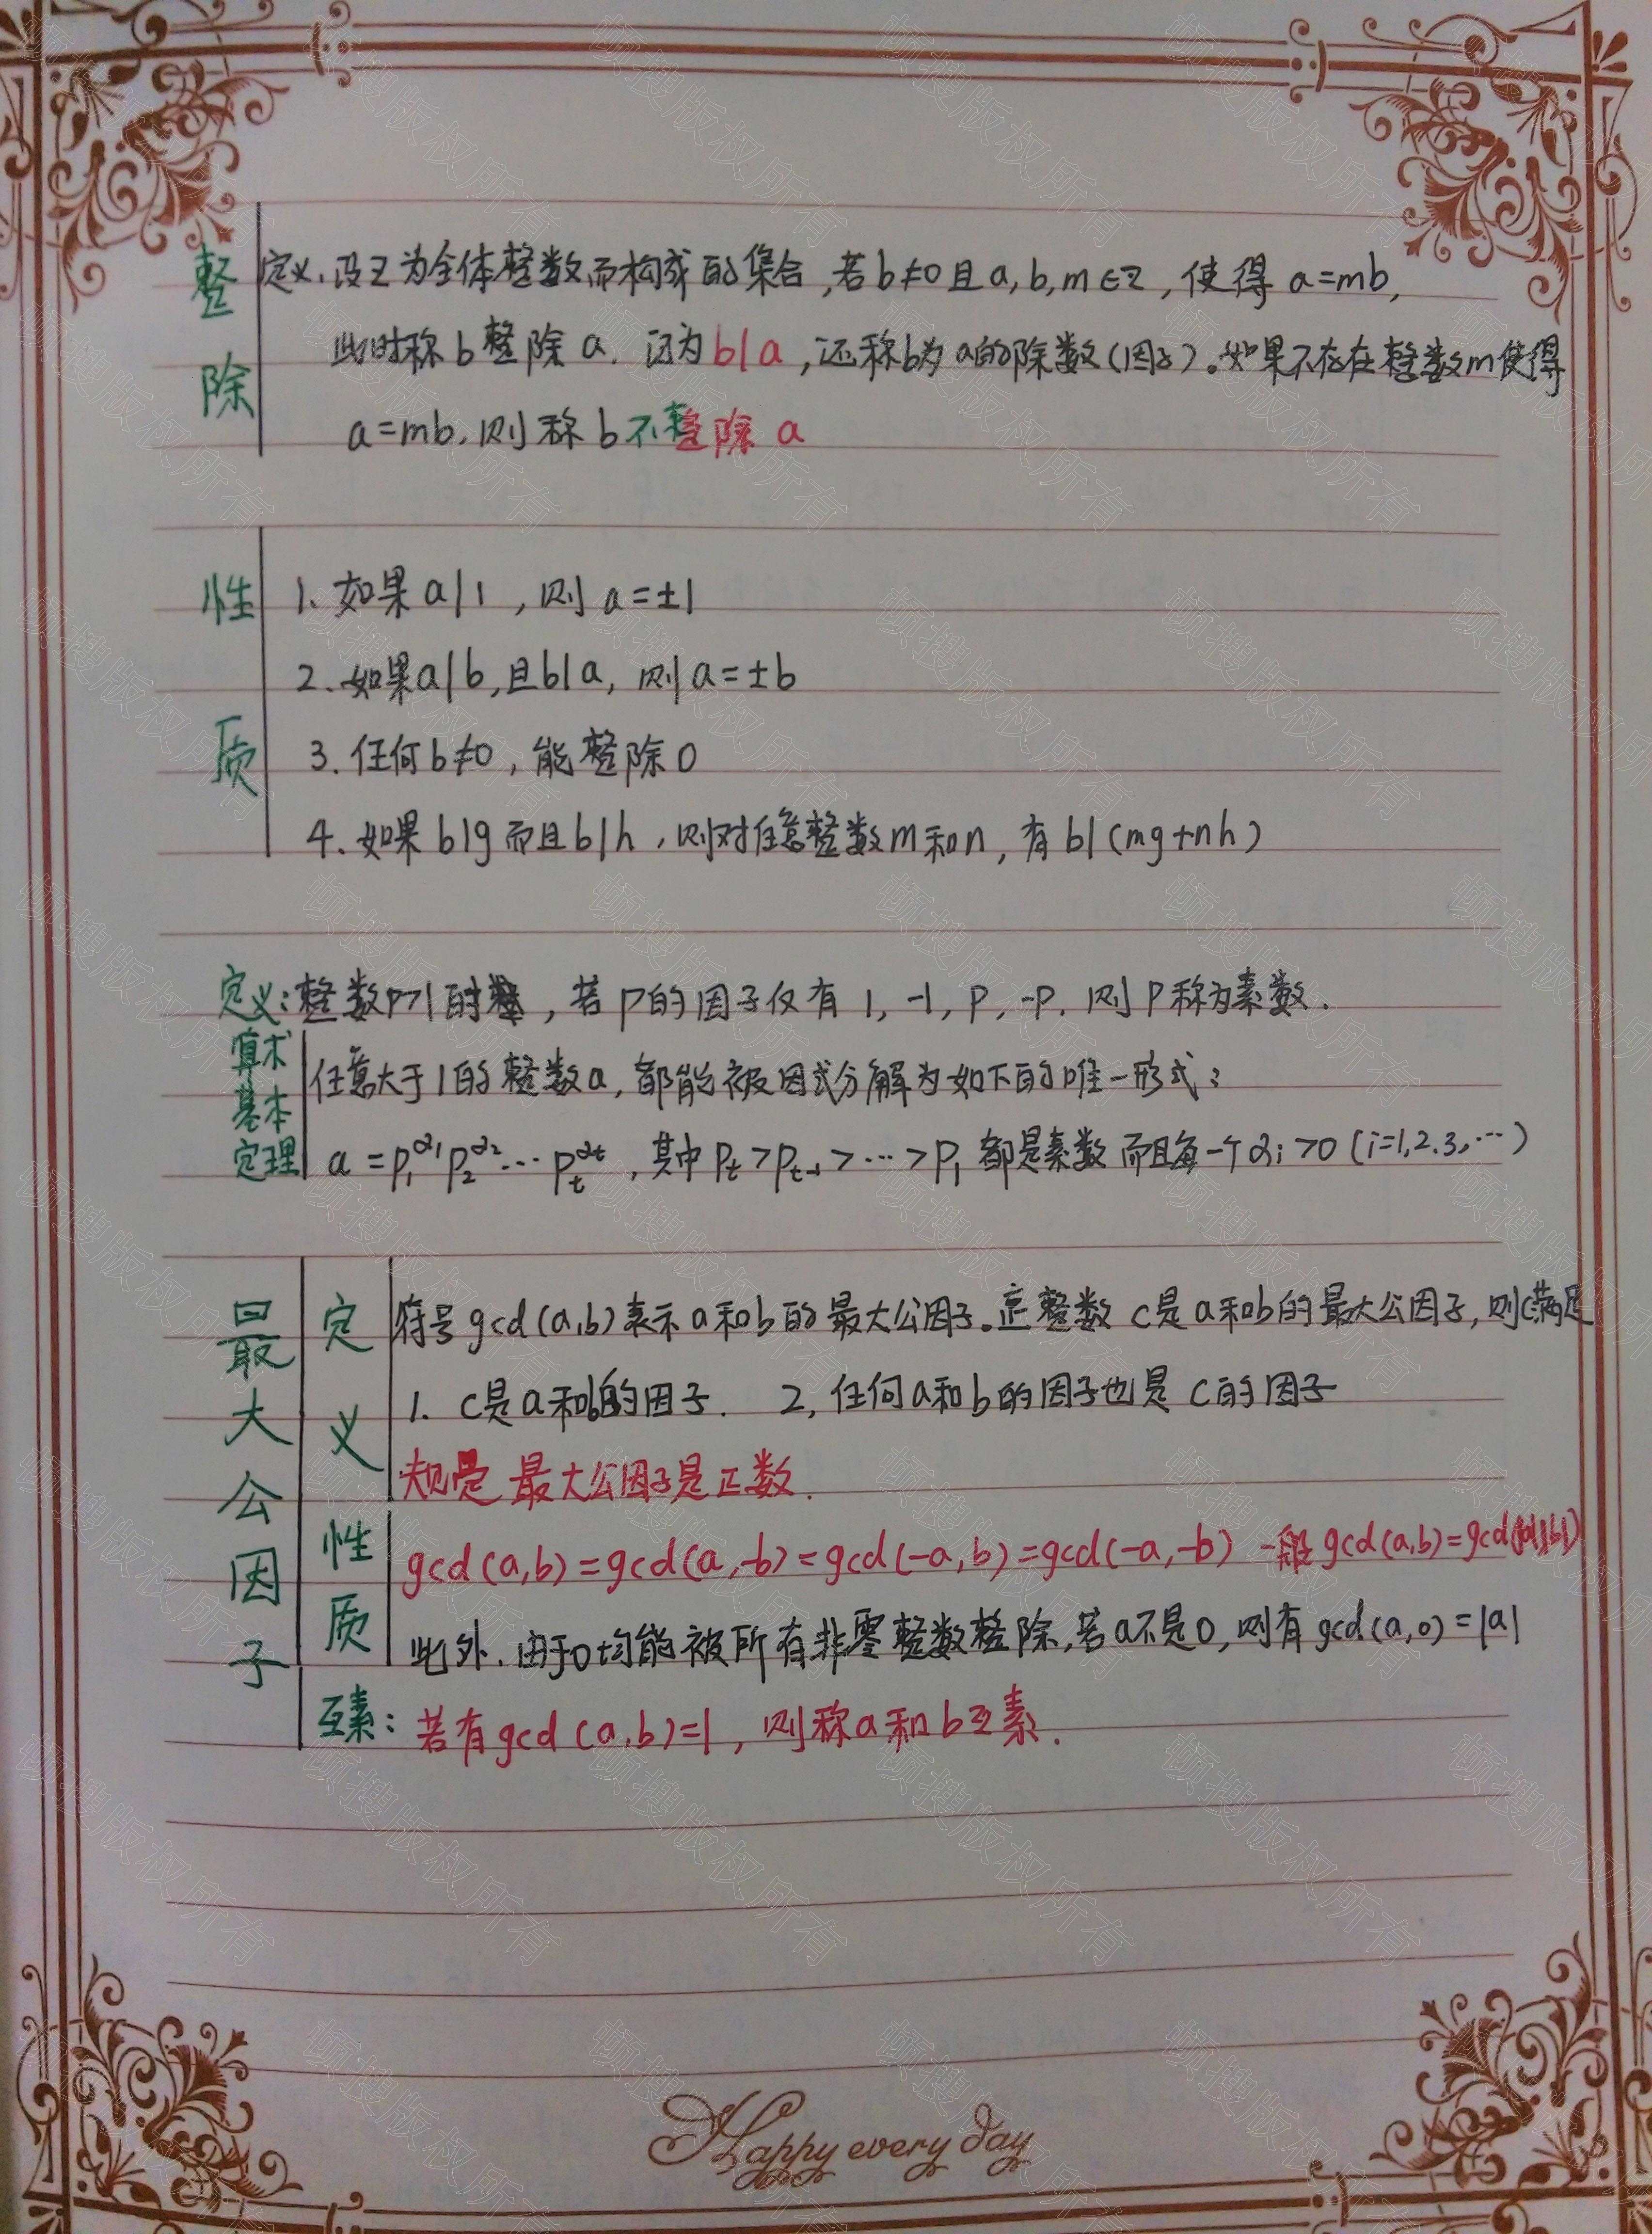 整除
定义.设Z为全体整数而构成的集合,若b≠0且a,b,m∈Z,使得 a=mb,
此时称b整除a. 记为b|a,还称b为a的除数(因子)。如果不存在整数m使得
a=mb.则称b不整除a
性质
1. 如果a|1,则 a=±1
2. 如果a|b,且b|a, 则a=±b
3. 任何b≠0,能整除0
4. 如果b|g而且b|h,则对任意整数m和n,有b|(mg+nh)
定义:整数p>1时,若p的因子仅有1,-1,p,-p.则p称为素数.
算术基本定理
任意大于1的整数a,都能被因式分解为如下的唯一形式:
a=p₁^α₁ p₂^α₂…p_t^α_t,其中p_t>p_{t-1}>…>p₁都是素数而且每一个αi>0(i=1,2.3,…)
最大公因子
定义
符号gcd(a,b)表示a和b的最大公因子。正整数c是a和b的最大公因子,则c满足
1. c是a和b的因子. 2,任何a和b的因子也是c的因子
规定 最大公因子是正数.
性质
gcd(a,b)=gcd(a,-b)=gcd(-a,b)=gcd(-a,-b) 一般gcd(a,b)=gcd(|a|,|b|)
此外.由于0均能被所有非零整数整除,若a不是0,则有gcd(a,0)=|a|
互素:若有gcd(a,b)=1,则称a和b互素.
Happy every day
顿搜版权所有